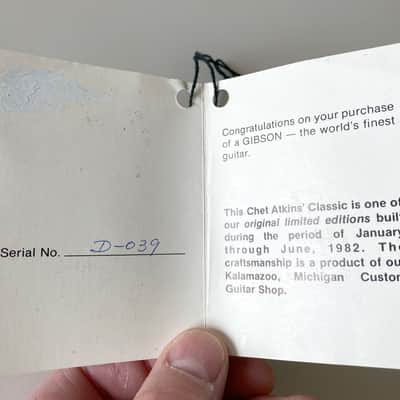 Serial No. D-039
Congratulations on your purchase
of a GIBSON — the world's finest
guitar.
This Chet Atkins' Classic is one of
our original limited editions built
during the period of January
through June, 1982. The
craftsmanship is a product of our
Kalamazoo, Michigan Custom
Guitar Shop.